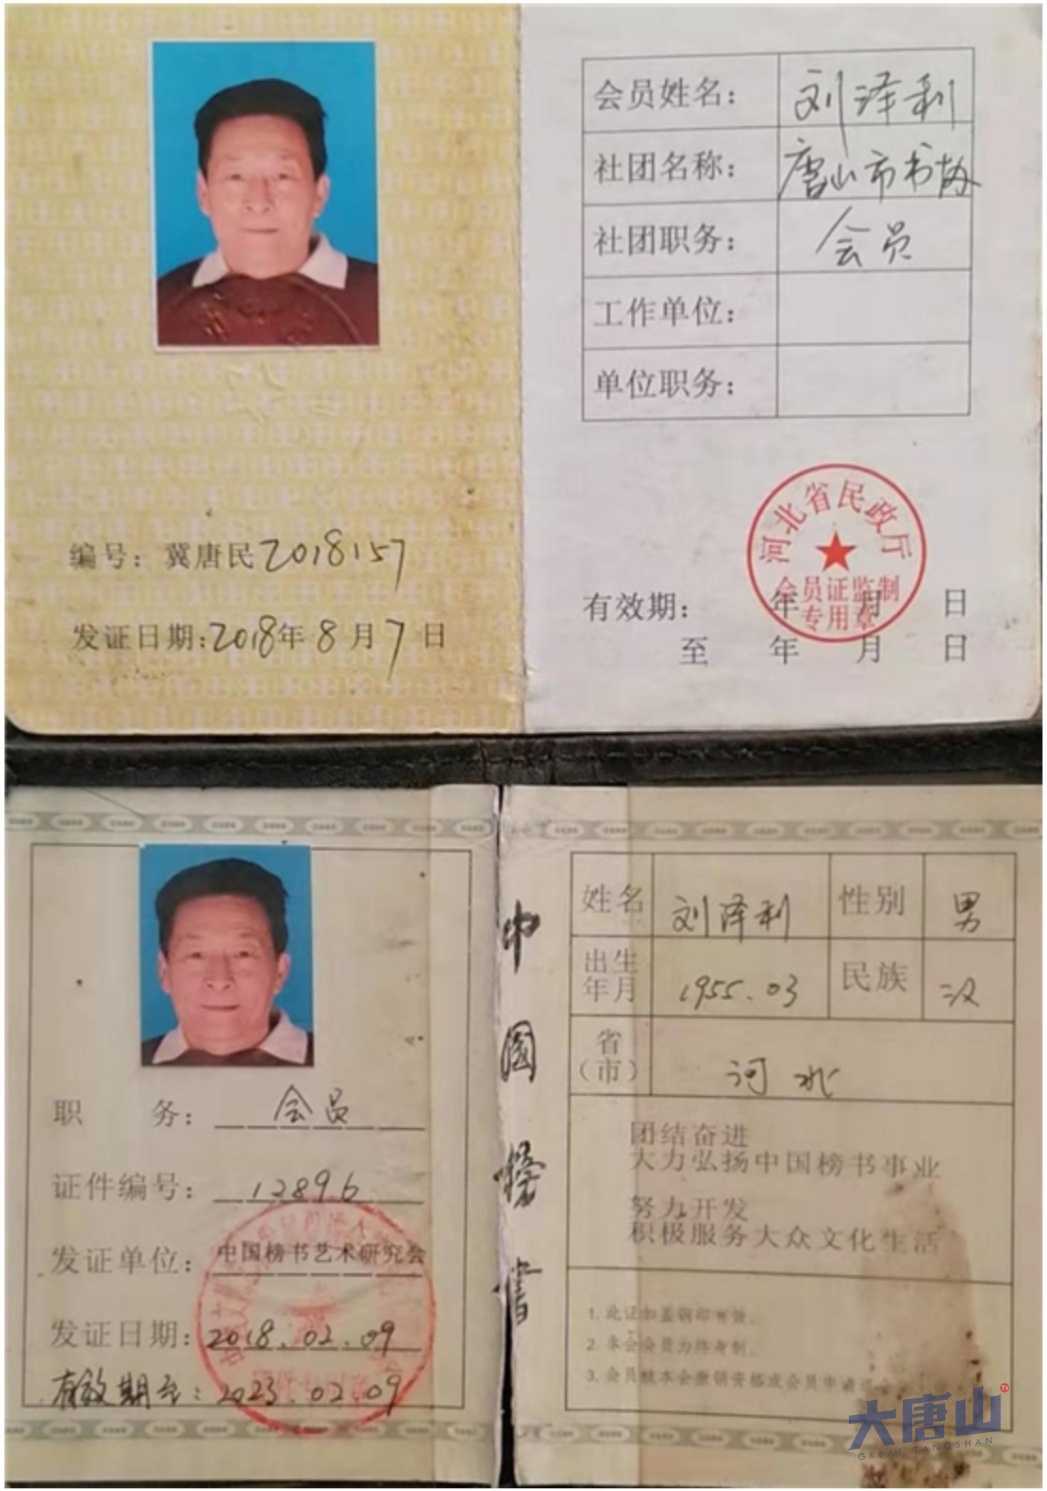 会员姓名：刘泽利
社团名称：唐山市书协
社团职务：会员
工作单位：
单位职务：
编号：冀唐民2018157
发证日期：2018年8月7日
河北省民政厅
会员证监制
专用章
有效期：　年　月　日
至　年　月　日
职　务：会员
证件编号：12896
发证单位：中国榜书艺术研究会
发证日期：2018.02.09
有效期至：2023.02.09
中国榜书
姓名 刘泽利 性别 男
出生年月 1955.03 民族 汉
省（市） 河北
团结奋进
大力弘扬中国榜书事业
努力开发
积极服务大众文化生活
1. 此证加盖钢印有效。
2. 本会会员为终身制。
3. 会员被本会撤销资格或会员申请退会
大唐山
GREAT TANGSHAN